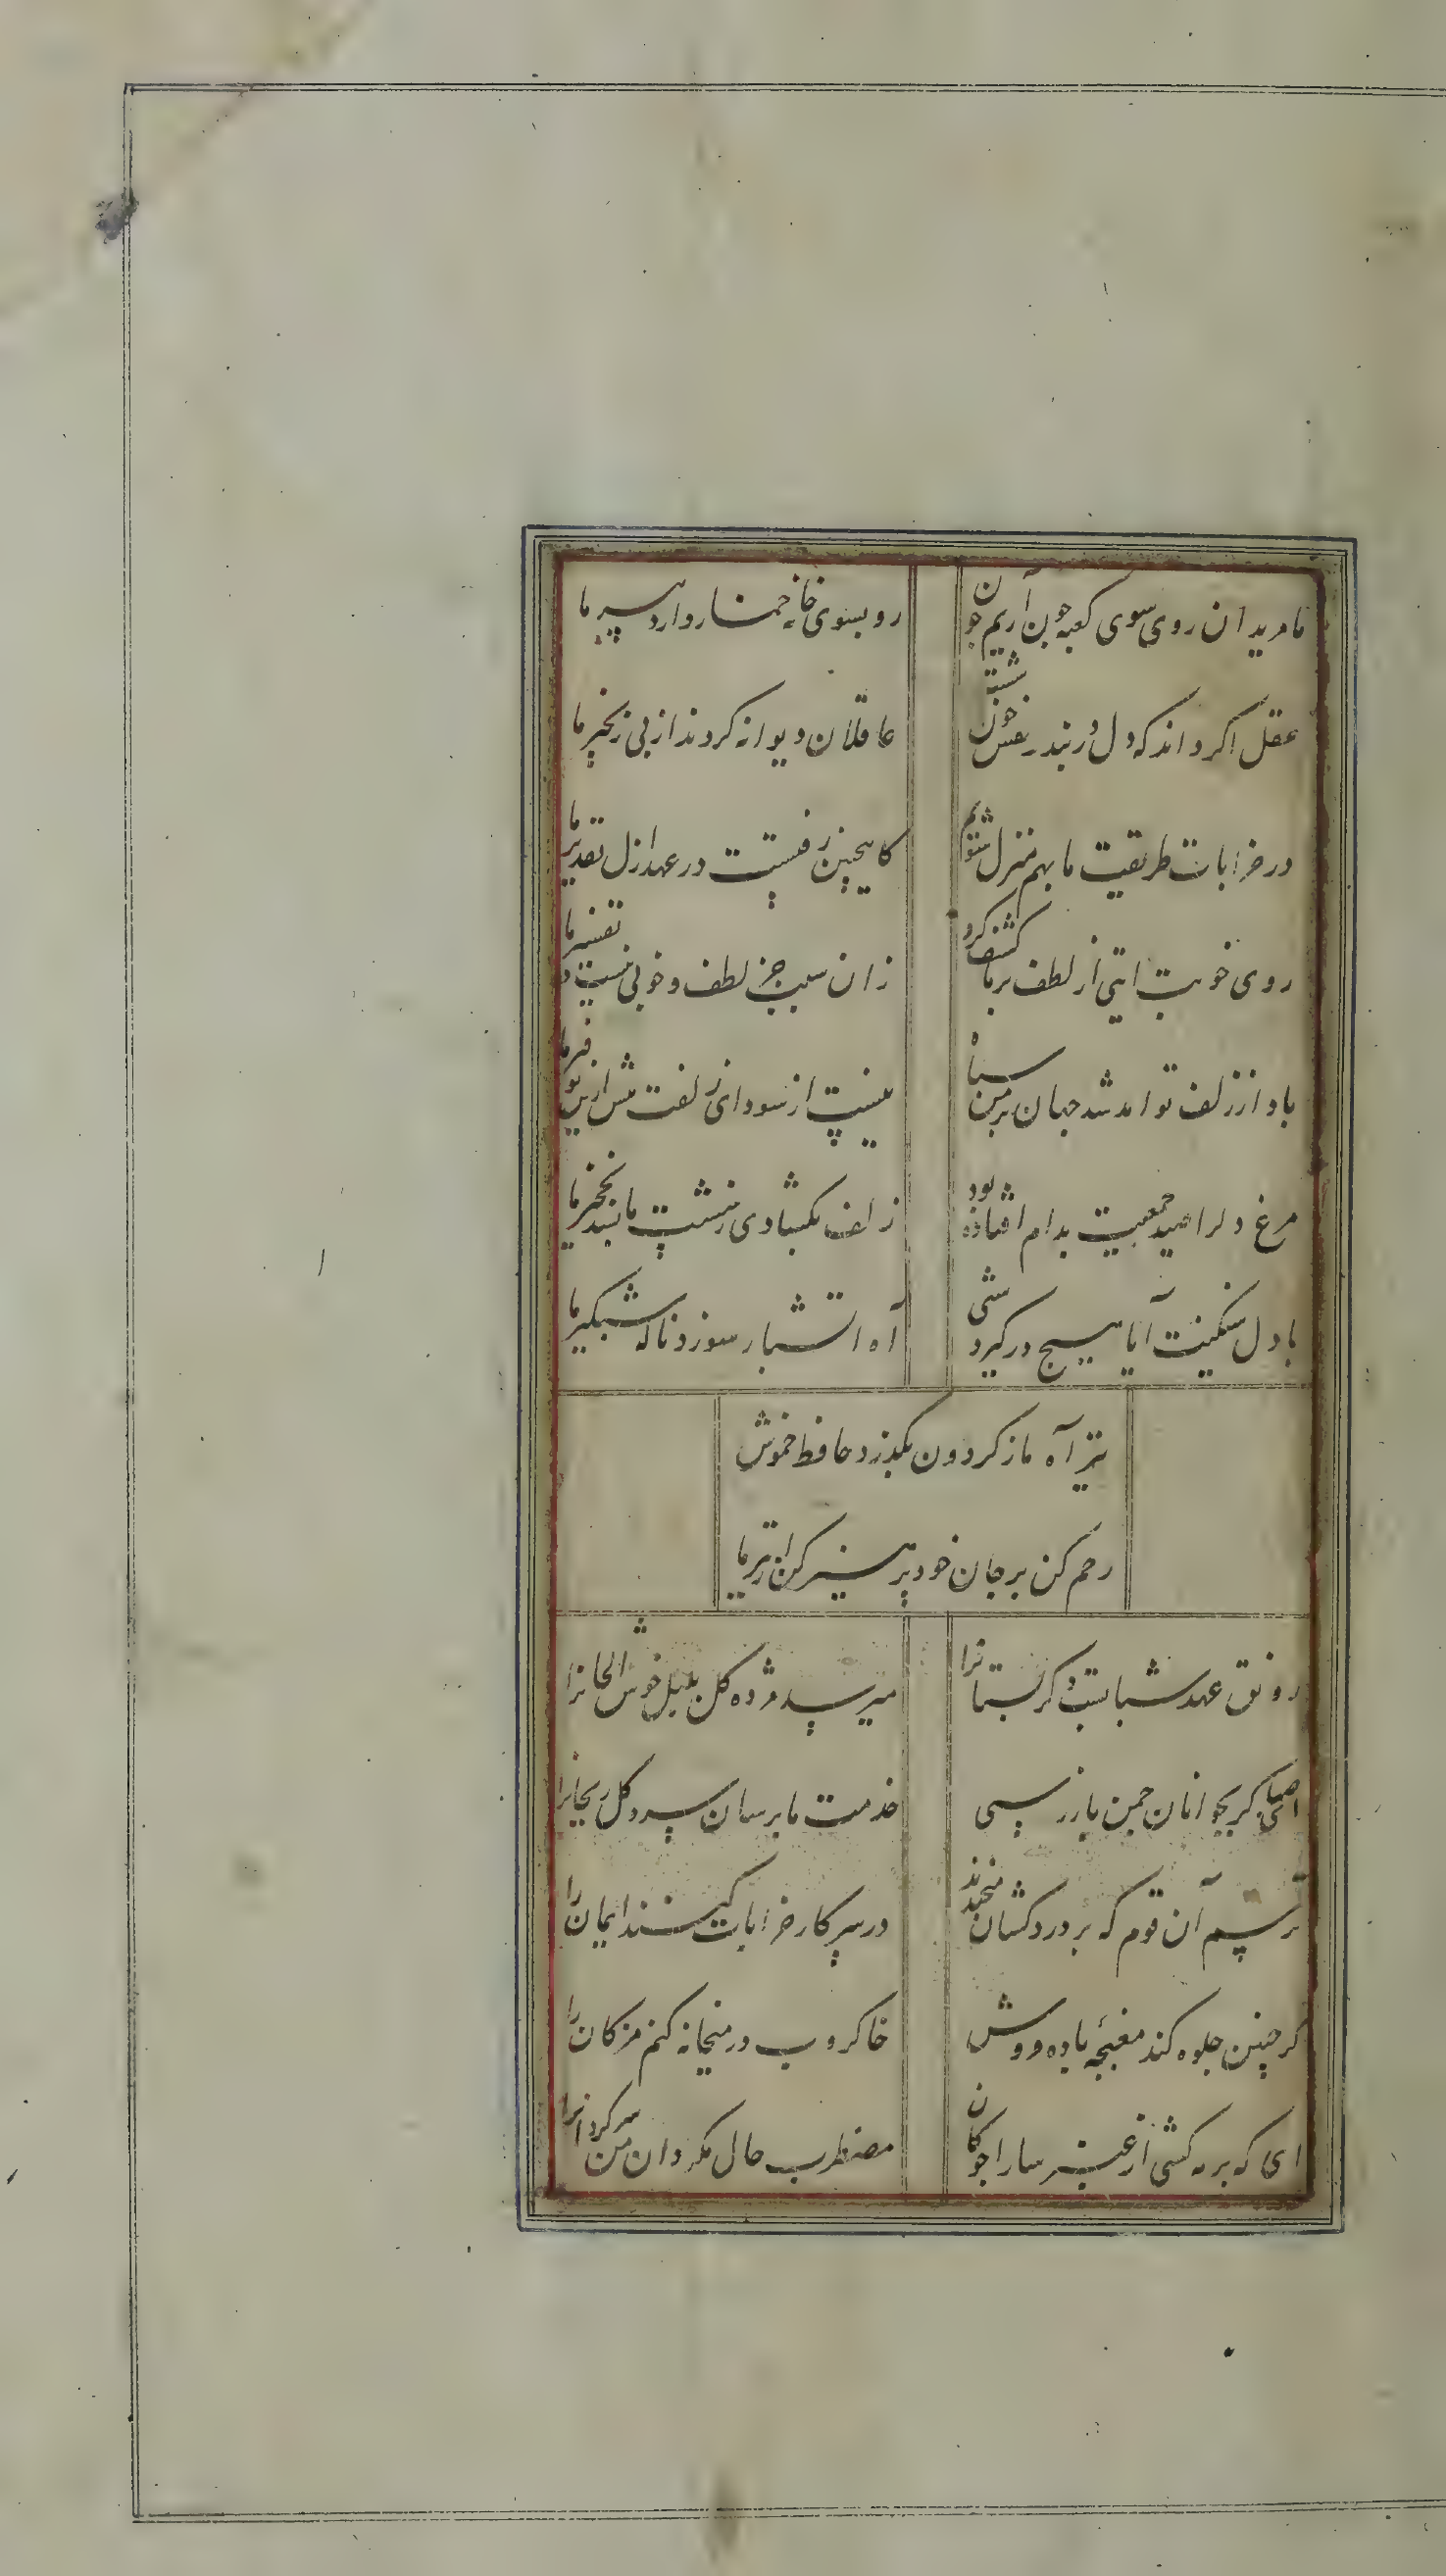 ما مریدان روی سوی کعبه چون آریم چون
رو بسوی خانه خمار دارد پیر ما
عقل اگر داند که دل در بند زلفش چون خوشست
عاقلان دیوانه کردند از پی زنجیر ما
در خرابات طریقت ما بهم منزل شویم
کاینچنین رفتست در عهد ازل تقدیر ما
روی خوبت ایتی از لطف بر ما کشف کرد
زان سبب جز لطف و خوبی نیست در تفسیر ما
باد از زلف تو امد شد جهان بر من سیاه
نیست از سودای زلفت بیش ازین توفیر ما
مرغ دلرا صید جمعیت بدام افتاده بود
زلف بکشادی ز شست ما بشد نخجیر ما
با دل سنکینت آیا هیچ درکیرد شبی
آه اتشبار و سوز و ناله شبکیر ما
تیر آه ما ز کردون بکذرد حافظ خموش
رحم کن بر جان خود پرهیز کن از تیر ما
رونق عهد شبابست دکر بستانرا
میرسد مژده کل بلبل خوش الحانرا
ای صبا کر بجوانان چمن باز رسی
خدمت ما برسان سرو و کل و ریحانرا
ترسم آن قوم که بر دردکشان میخندند
در سر کار خرابات کنند ایمان را
کر چنین جلوه کند مغبچهٔ باده فروش
خاکروب در میخانه کنم مژکان را
ای که بر مه کشی از عنبر سارا چوکان
مضطرب حال مکردان من سرکردانرا